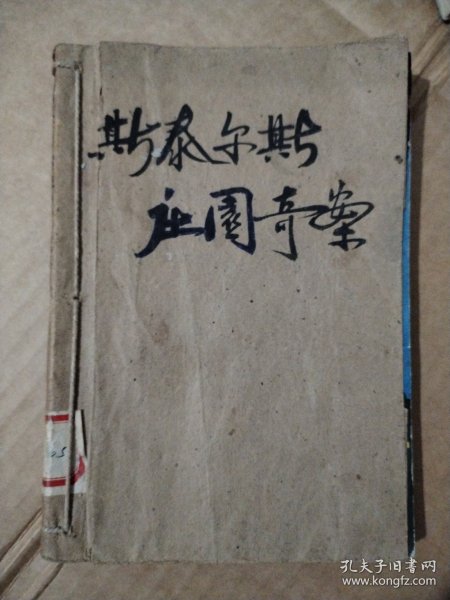 斯泰尔斯
庄園奇案
孔夫子旧书网
www.kongfz.com